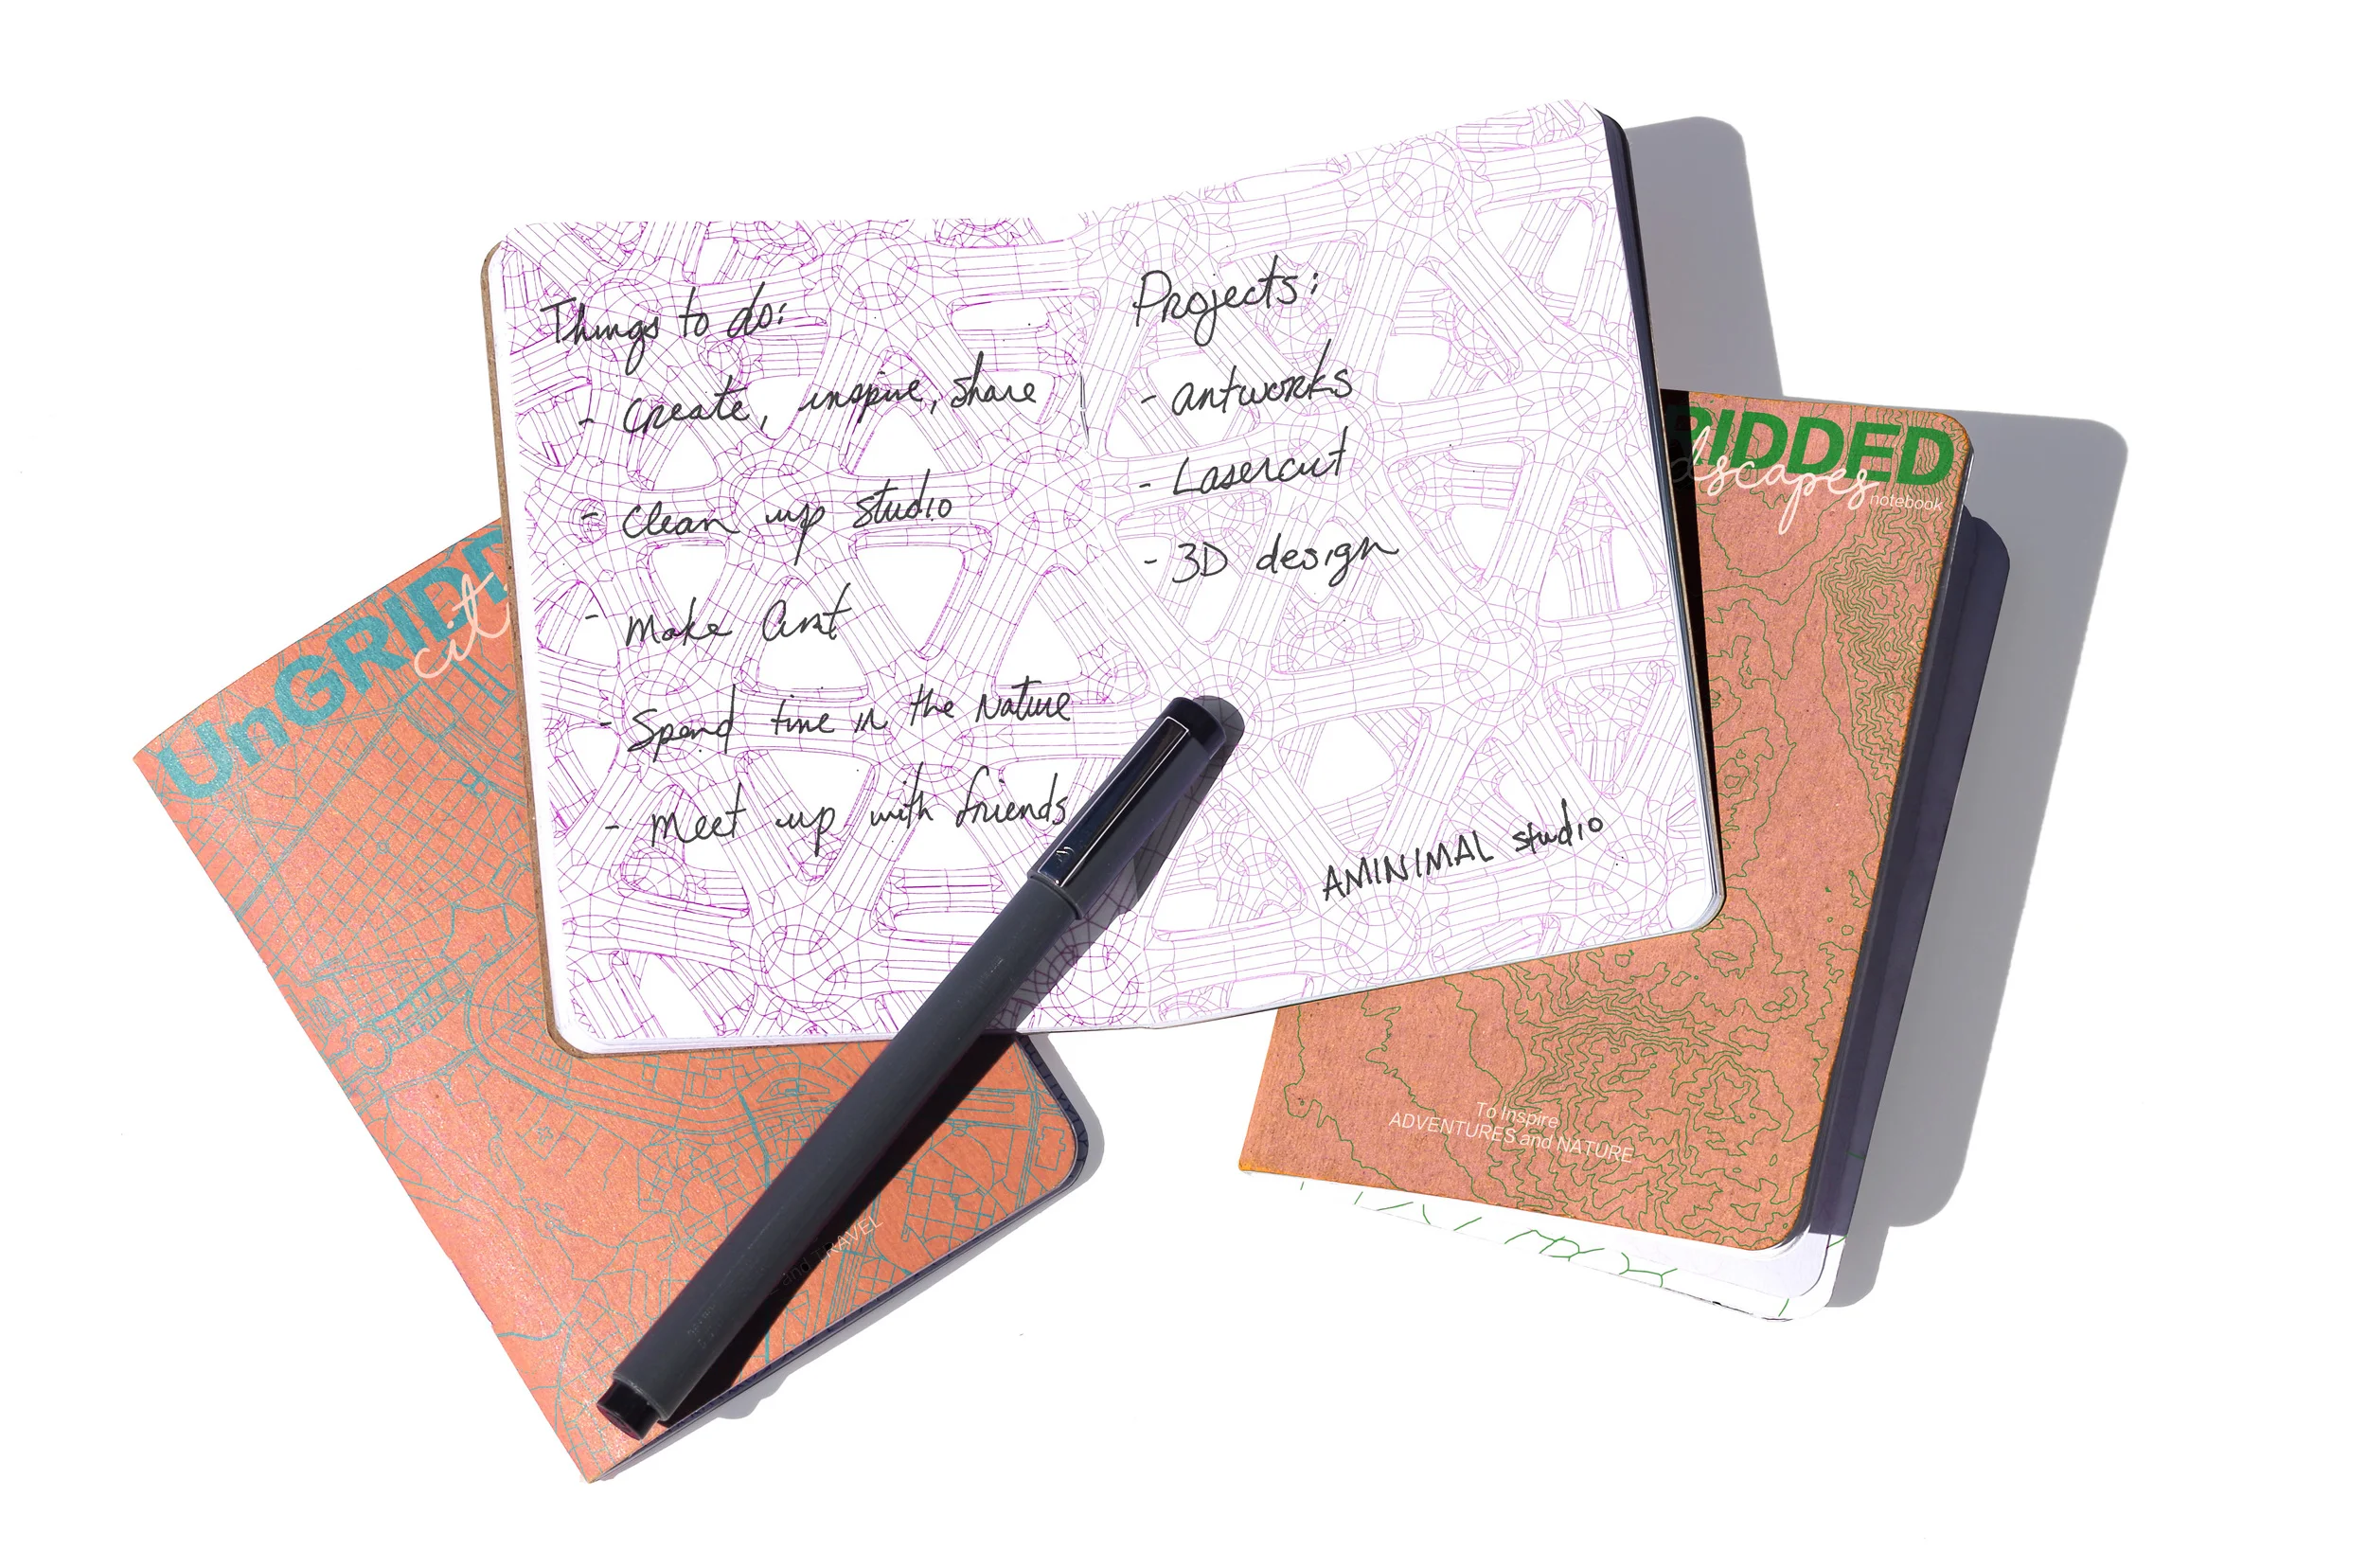 Things to do:
- Create, inspire, share
- Clean up studio
- Make Art
- Spend time in the Nature
- Meet up with friends
Projects:
- artworks
- Lasercut
- 3D design
AMINIMAL studio
UnGRIDD
cit
and TRAVEL
RIDDED
dscapes
notebook
To Inspire
ADVENTURES and NATURE